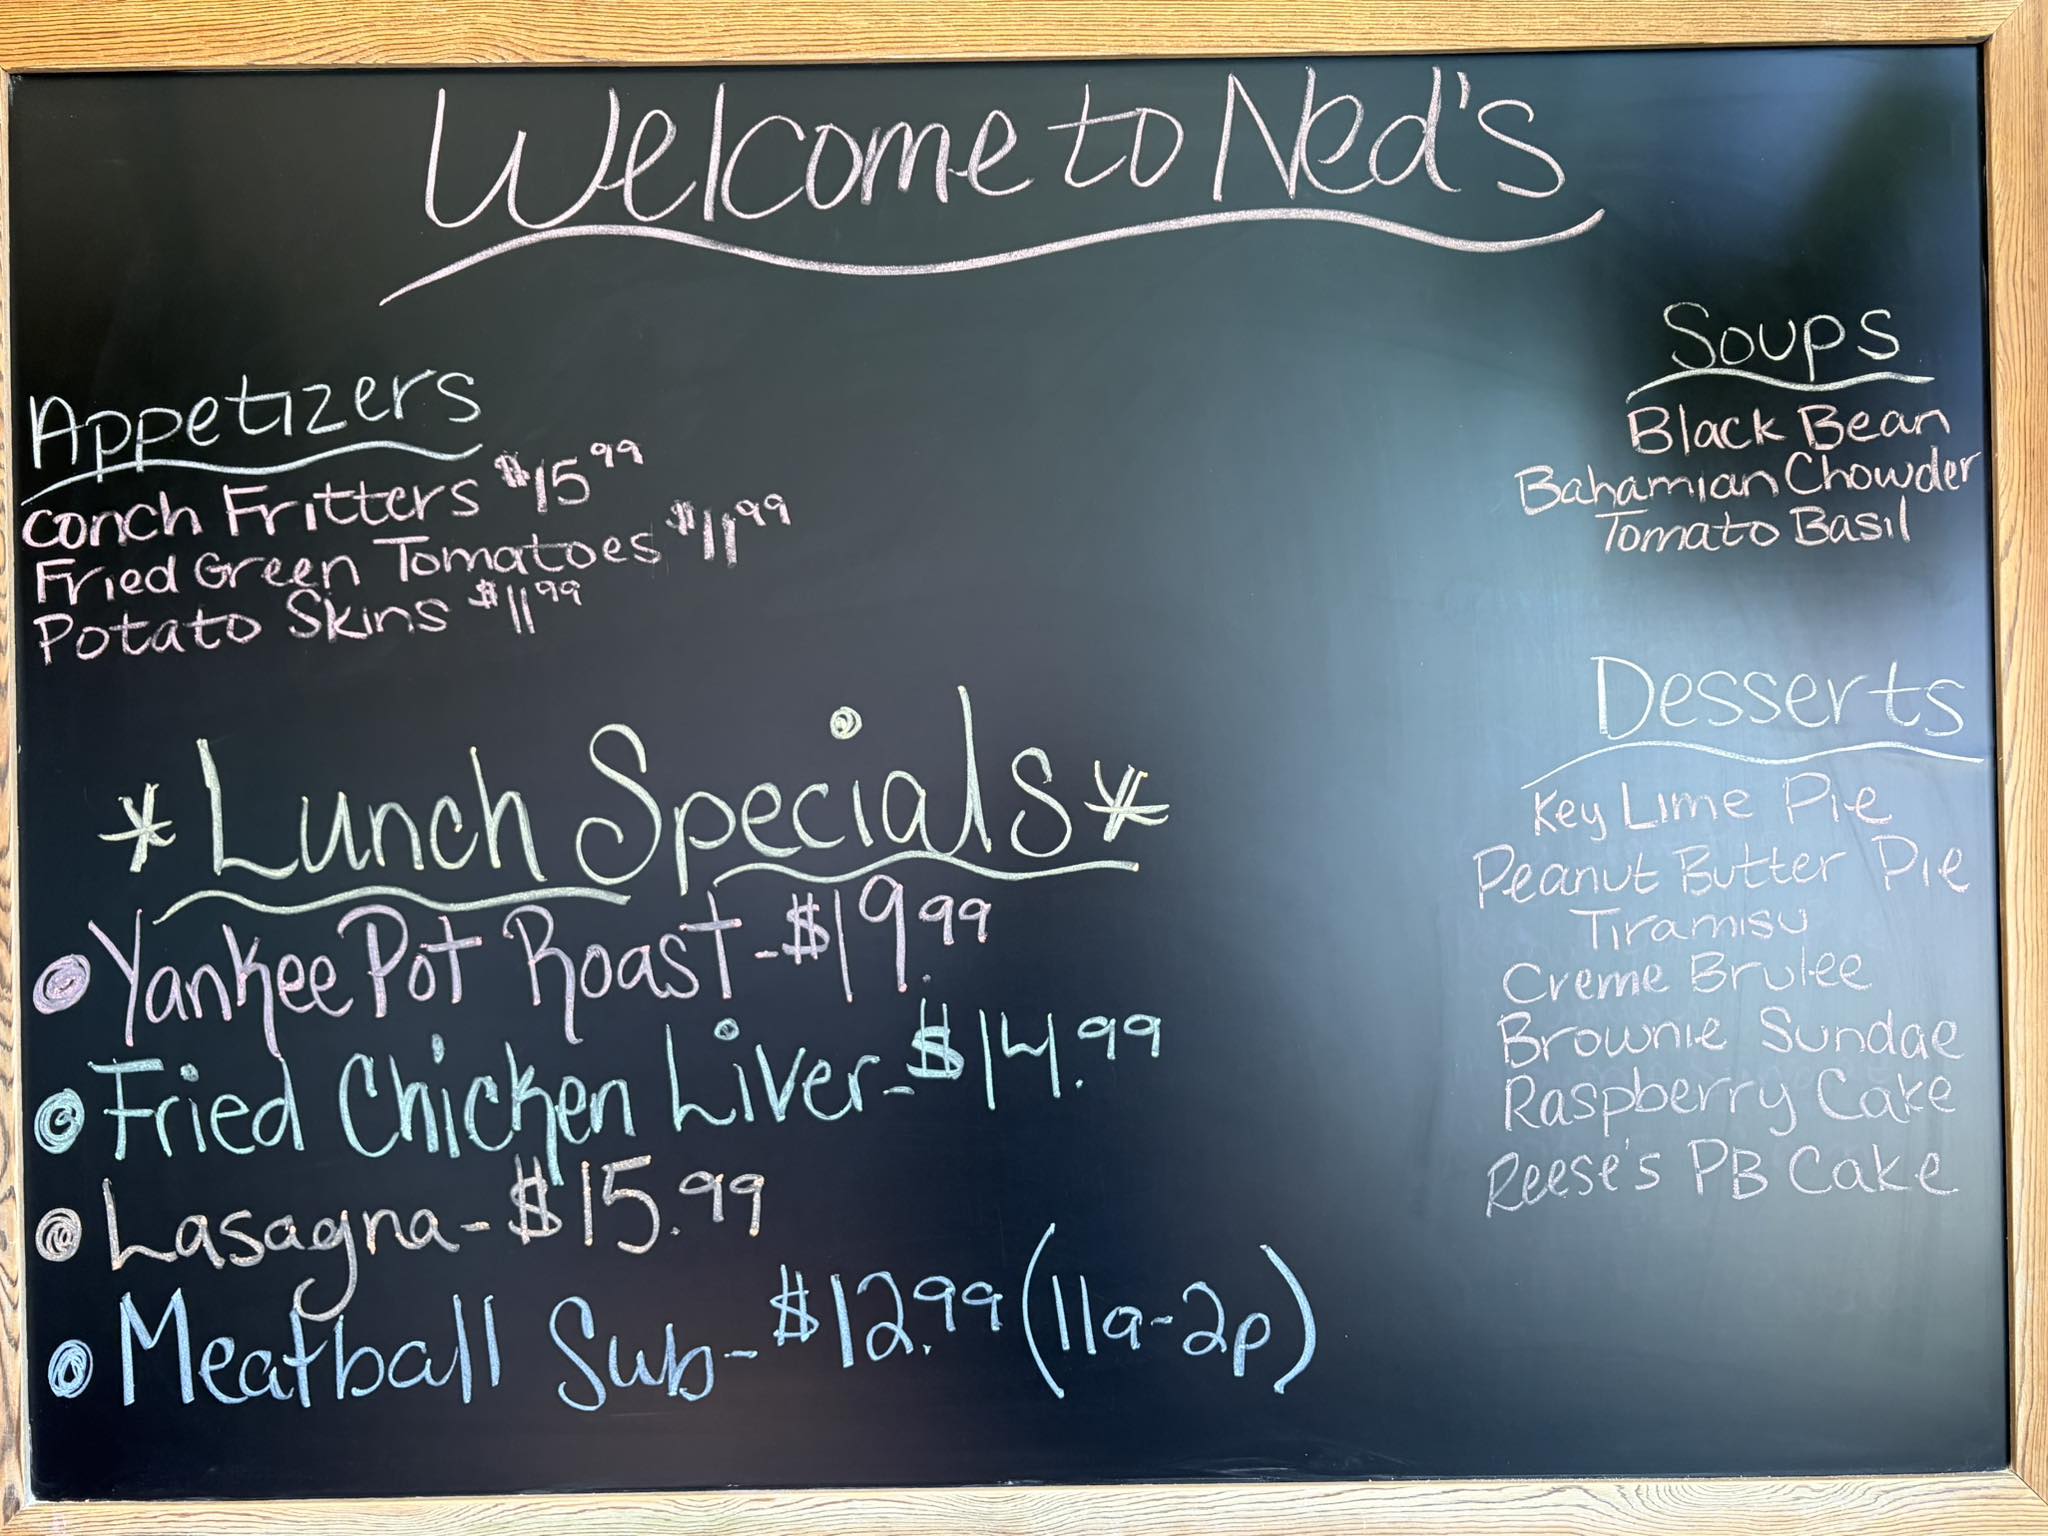 Welcome to Ned's
Appetizers
Conch Fritters $15.99
Fried Green Tomatoes $11.99
Potato Skins $11.99
*Lunch Specials*
Yankee Pot Roast - $19.99
Fried Chicken Liver - $14.99
Lasagna - $15.99
Meatball Sub - $12.99 (11a-2p)
Soups
Black Bean
Bahamian Chowder
Tomato Basil
Desserts
Key Lime Pie
Peanut Butter Pie
Tiramisu
Creme Brulee
Brownie Sundae
Raspberry Cake
Reese's PB Cake